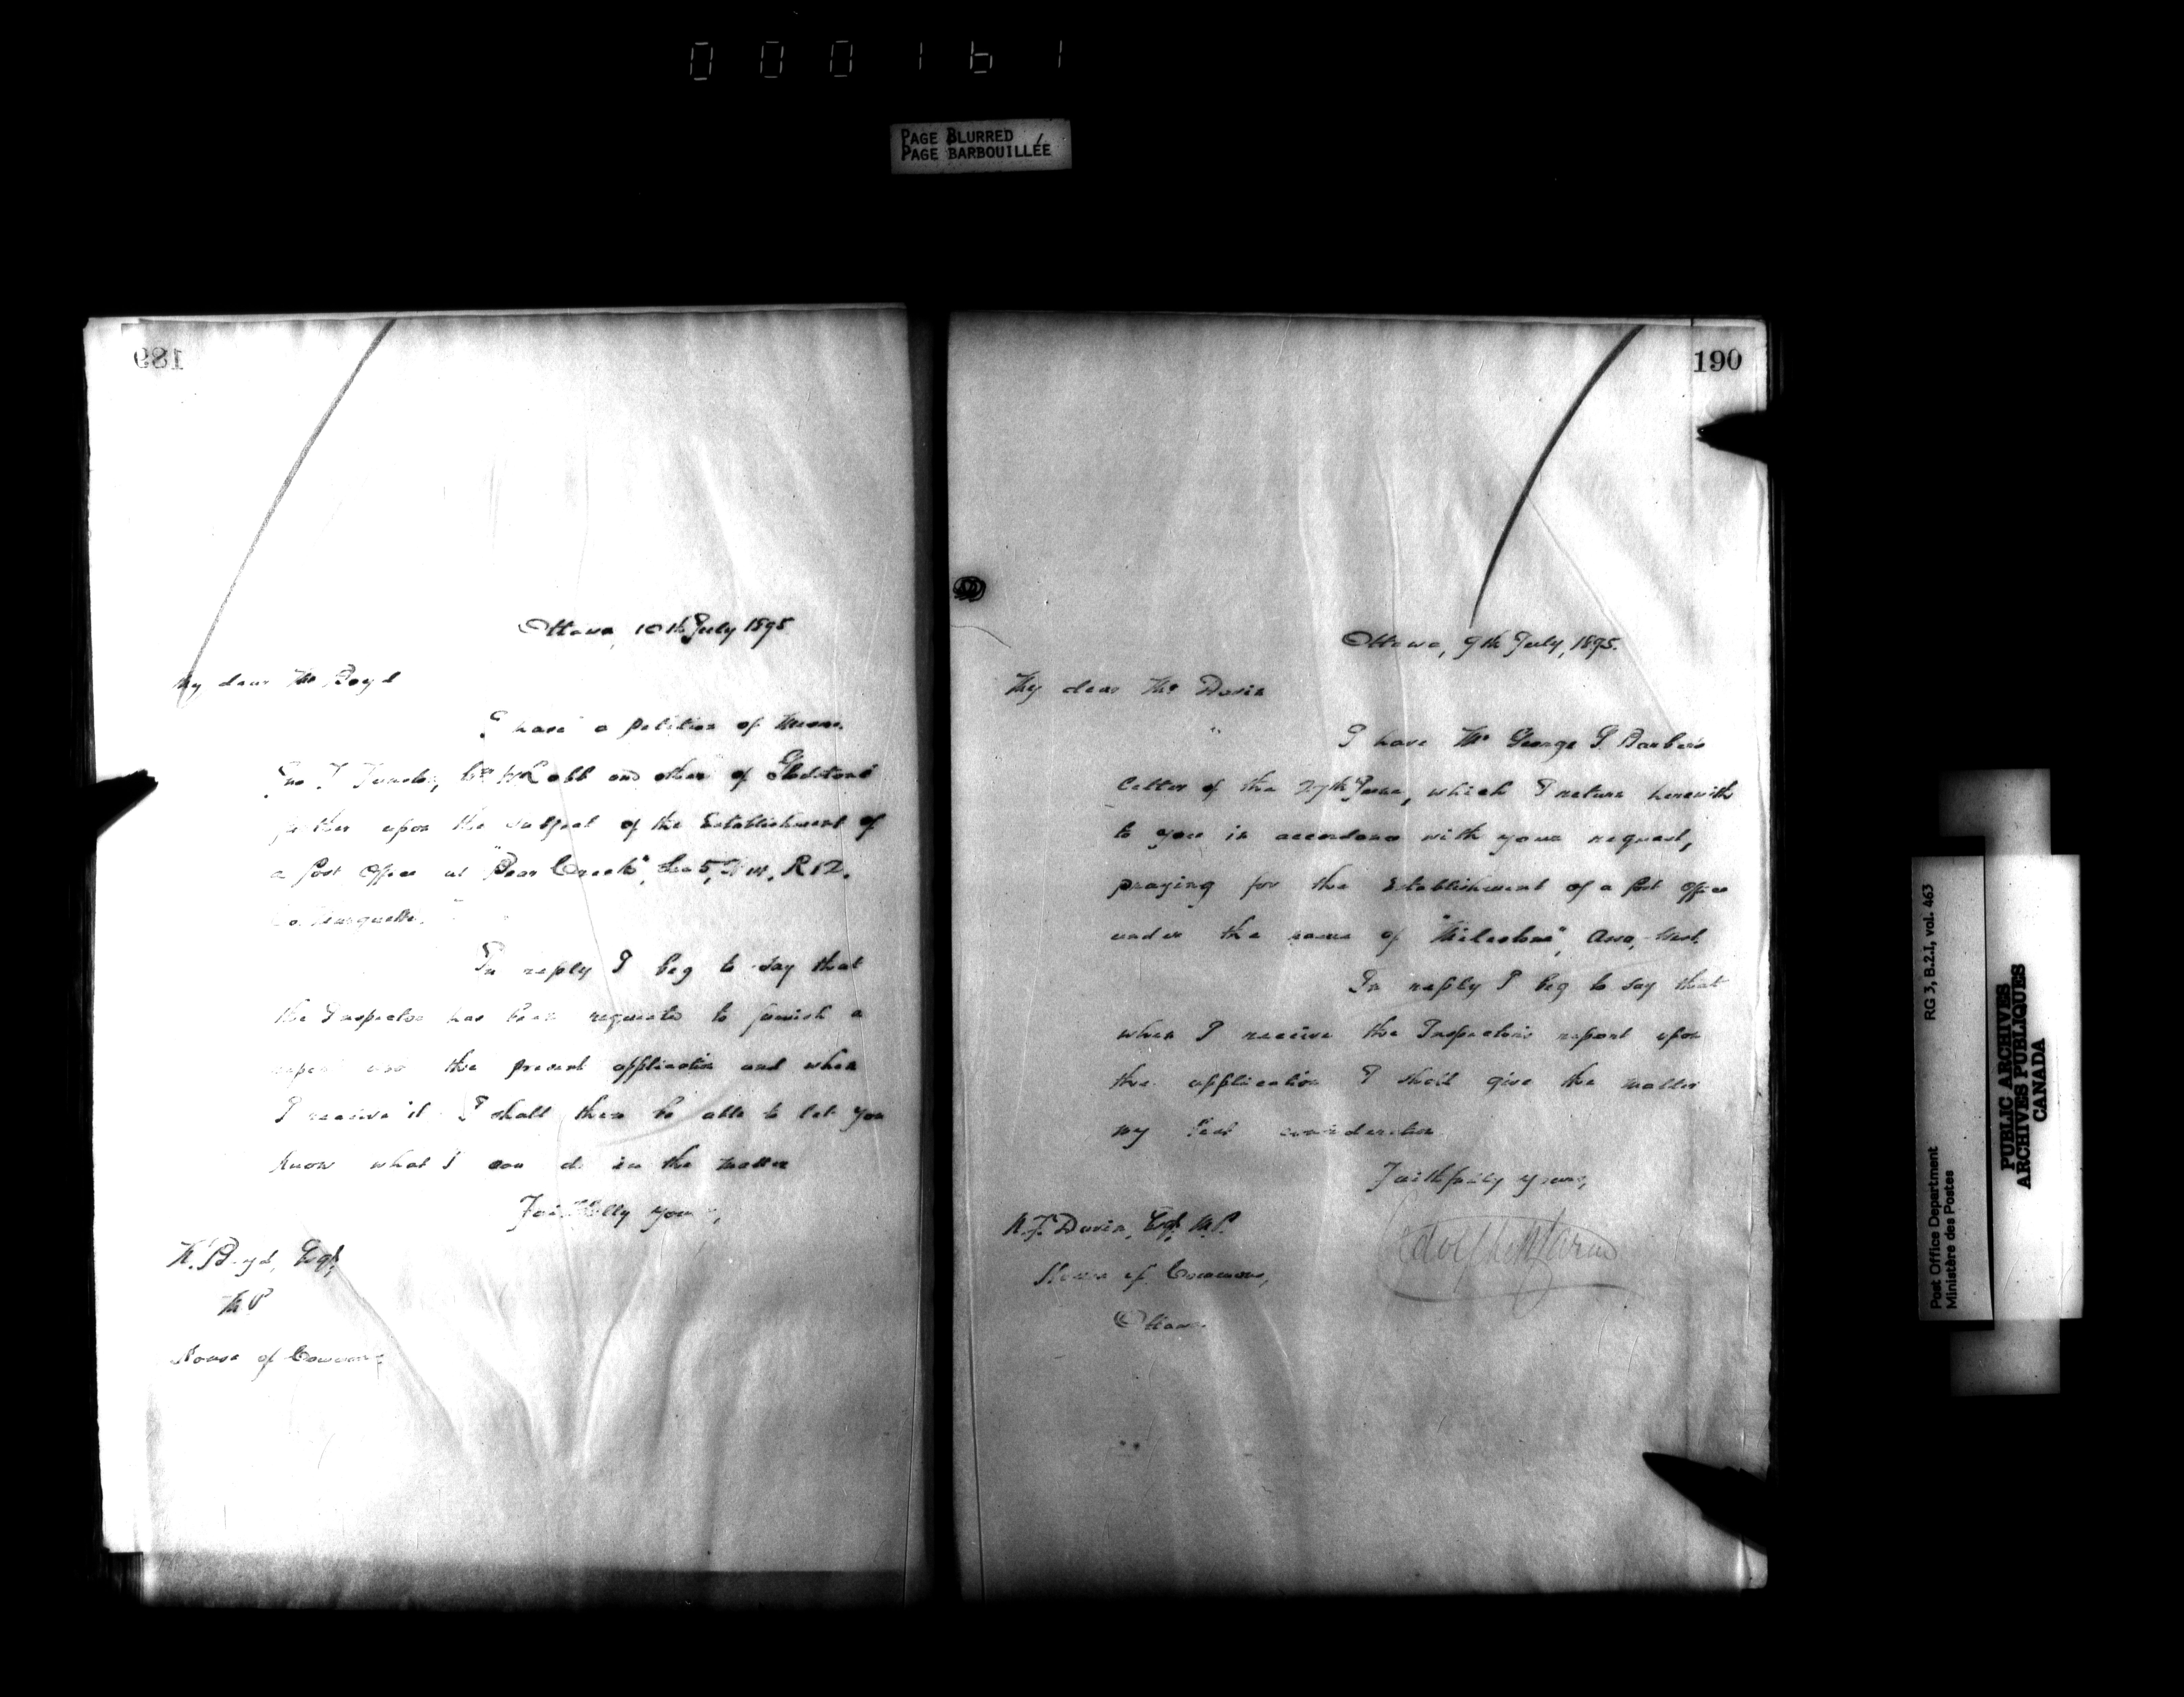 000161
PAGE BLURRED
PAGE BARBOUILLÉE
189
Ottawa, 10th July 1895
My dear Mr Boyd
I have a petition of Messrs.
Jno T and others of Gladstone
upon the subject of the Establishment of
a Post Office at "Bear Creek", Sec 5, R 12.
Co. Marquette.
In reply I beg to say that
the Inspector has been requested to furnish a
report upon the present application and when
I receive it I shall then be able to let you
know what I can do in the matter
Faithfully yours,
N. Boyd, Esqr,
M P
House of Commons
190
Ottawa, 9th July, 1895.
My dear Mr Davin
I have Mr George P. Barber's
letter of the 27th June, which I return herewith
to you in accordance with your request,
praying for the Establishment of a Post Office
under the name of "Milestone", Assa. West.
In reply I beg to say that
when I receive the Inspector's report upon
the application I shall give the matter
my best consideration
Faithfully yours,
Adolphe P Caron
N. F. Davin, Esqr, M.P.
House of Commons,
Ottawa.
RG 3, B.2.I, vol. 463
Post Office Department
Ministère des Postes
PUBLIC ARCHIVES
ARCHIVES PUBLIQUES
CANADA